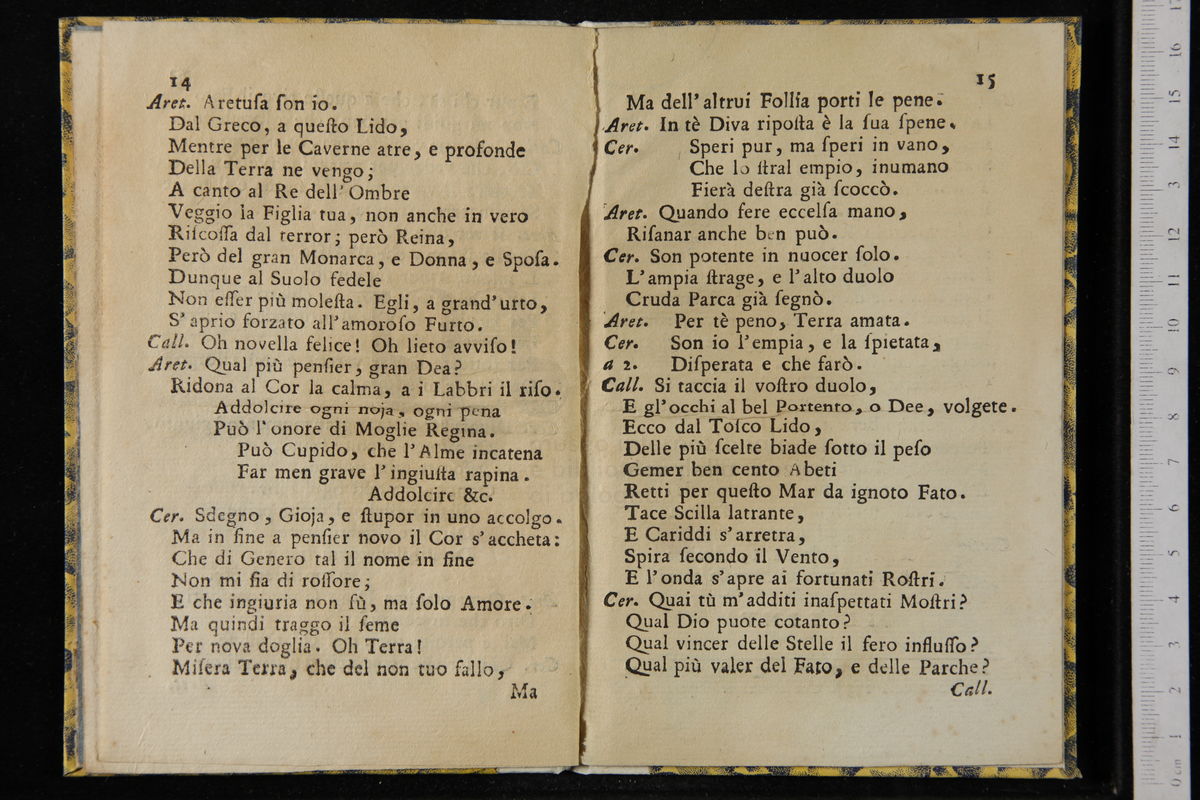 14
Aret. Aretuſa ſon io.
Dal Greco, a queſto Lido,
Mentre per le Caverne atre, e profonde
Della Terra ne vengo;
A canto al Re dell' Ombre
Veggio la Figlia tua, non anche in vero
Riſcoſſa dal terror; però Reina,
Però del gran Monarca, e Donna, e Spoſa.
Dunque al Suolo fedele
Non eſſer più moleſta. Egli, a grand'urto,
S'aprio forzato all'amoroſo Furto.
Call. Oh novella felice! Oh lieto avviſo!
Aret. Qual più penſier, gran Dea?
Ridona al Cor la calma, a i Labbri il riſo.
Addolcire ogni noja, ogni pena
Può l'onore di Moglie Regina.
Può Cupido, che l'Alme incatena
Far men grave l'ingiuſta rapina.
Addolcire &c.
Cer. Sdegno, Gioja, e ſtupor in uno accolgo.
Ma in fine a penſier novo il Cor s'accheta:
Che di Genero tal il nome in fine
Non mi ſia di roſſore;
E che ingiuria non fù, ma ſolo Amore.
Ma quindi traggo il ſeme
Per nova doglia. Oh Terra!
Miſera Terra, che del non tuo fallo,
Ma
15
Ma dell'altrui Follía porti le pene.
Aret. In tè Diva ripoſta è la ſua ſpene.
Cer. Speri pur, ma ſperi in vano,
Che lo ſtral empio, inumano
Fierà deſtra già ſcoccò.
Aret. Quando fere eccelſa mano,
Riſanar anche ben può.
Cer. Son potente in nuocer ſolo.
L'ampia ſtrage, e l'alto duolo
Cruda Parca già ſegnò.
Aret. Per tè peno, Terra amata.
Cer. Son io l'empia, e la ſpietata,
a 2. Diſperata e che farò.
Call. Si taccia il voſtro duolo,
E gl'occhi al bel Portento, o Dee, volgete.
Ecco dal Toſco Lido,
Delle più ſcelte biade ſotto il peſo
Gemer ben cento Abeti
Retti per queſto Mar da ignoto Fato.
Tace Scilla latrante,
E Cariddi s'arretra,
Spira ſecondo il Vento,
E l'onda s'apre ai fortunati Roſtri.
Cer. Quai tù m'additi inaſpettati Moſtri?
Qual Dio puote cotanto?
Qual vincer delle Stelle il fero influſſo?
Qual più valer del Fato, e delle Parche?
Call.
0 cm 1 2 3 4 5 6 7 8 9 10 11 12 13 14 15 16 17